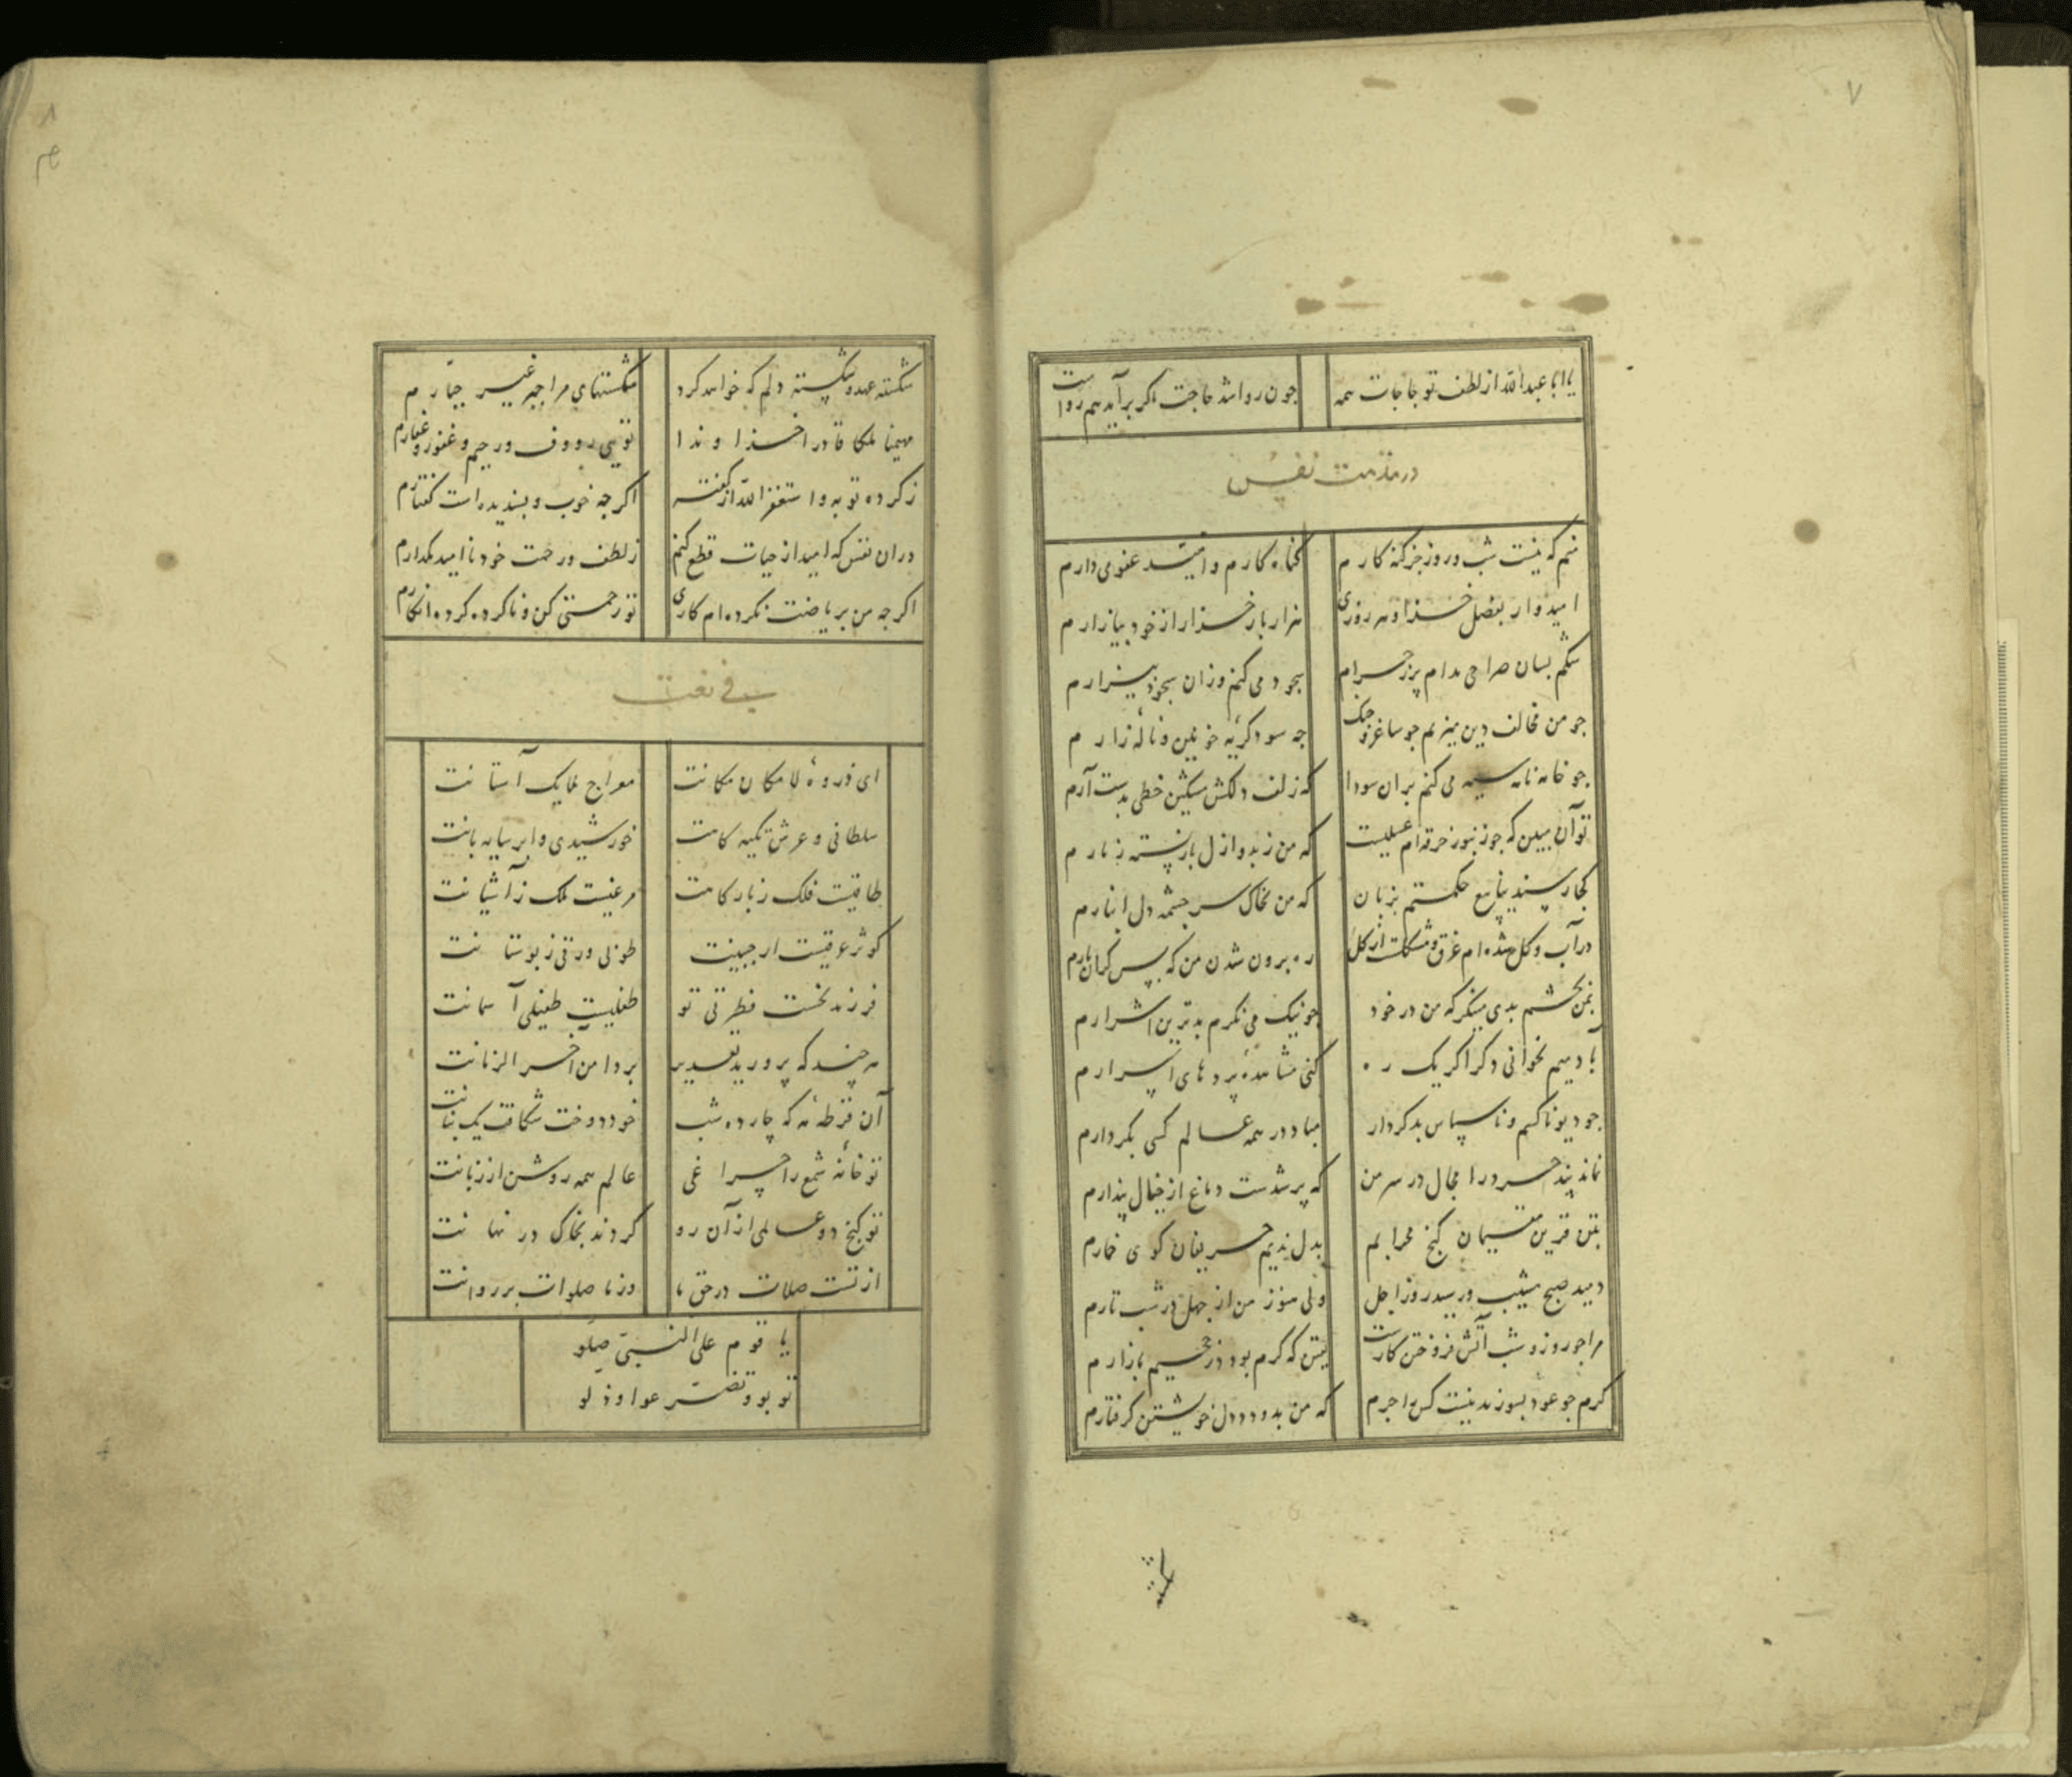 ۷
یا ابا عبدالله از لطف تو حاجات همه
چون روا شد حاجت ما گر برآید هم رواست
در مذمت نفس
منم که نیست شب و روز جز گنه کارم
گناه کارم و امید عفو می دارم
امیدوار بفضل خدا و هر روزی
هزار بار خدا را ز خود بیازارم
شکم بسان صراحی مدام پر ز حرام
سجود می کنم و زان سجود بیزارم
چو من مخالف دین میزیم چو ساغر و چنگ
چه سود گریه خونین و ناله زارم
چو خامه نامه سیه می کنم بران سودا
که زلف دلکش مشکین خطی بدست آرم
تو آن مبین که چو زنبور خرقه ام عسلیست
که من ز بد و ازل باز بسته زنارم
کجا رسند ینابیع حکمتم بزبان
که من بخاک سر چشمه دل انبارم
در آب و گل شده ام غرق و مشکلست از گل
ره برون شدن من که بس گران بارم
بمن بچشم بدی منگر که من در خود
چو نیک می نگرم بدترین اشرارم
با دمیم نخوانی دگر اگر یک ره
کنی مشاهده پردهای اسرارم
چو دیو ناکس و ناسپاس بد کردار
مباد در همه عالم کسی بکردارم
نماند پند خرد را مجال در سر من
که پر شدست دماغ از خیال پندارم
بتن قرین مقیمان کنج محرابم
بدل ندیم حریفان کوی خمارم
دمید صبح مشیب و رسید روز اجل
ولی هنوز من از جهل در شب تارم
مرا چو روز و شب آتش فروختن کارست
یقین که گرم بود در جحیم بازارم
گرم چو عود بسوزند نیست کس را جرم
که من بدود دل خویشتن گرفتارم
۸
شکسته عهد و شکسته دلم که خواهد کرد
شکستهای مرا جبر غیر جبارم
مهیمنا ملکا قادرا خداوندا
تویی رووف و رحیم و غفور و غفارم
ز کرده توبه و استغفر الله از گفته
اگر چه خوب و پسندیده است گفتارم
دران نفس که امید از حیات قطع کنم
ز لطف و رحمت خود ناامید مگذارم
اگر چه من بریاضت نکرده ام کاری
تو رحمتی کن و ناکرده کرده انگارم
فی نعت
ای ذروه لامکان مکانت
معراج ملایک آستانت
سلطانی و عرش تکیه گاهت
خورشیدی و ابر سایه بانت
طاقیست فلک ز بارگاهت
مرغیست ملک ز آشیانت
کوثر عرقیست از جبینت
طوبی ورقی ز بوستانت
فرزند نخست فطرتی تو
طفلیست طفیلی آسمانت
هر چند که پرورید تقدیر
بر دامن آخر الزمانت
آن قرطه مه که چارده شب
خور دوخت شکافت یک بنانت
تو خانه شمع را چراغی
عالم همه روشن از زبانت
تو گنج دو عالمی از آن رو
کردند بخاک در نهانت
از تست صلات در حق ما
وز ما صلوات بر روانت
یا قوم علی النبی صلوا
توبوا و تضرعوا و ذلوا